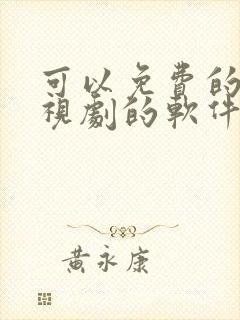 可以免費的
視劇的軟件
黃永康